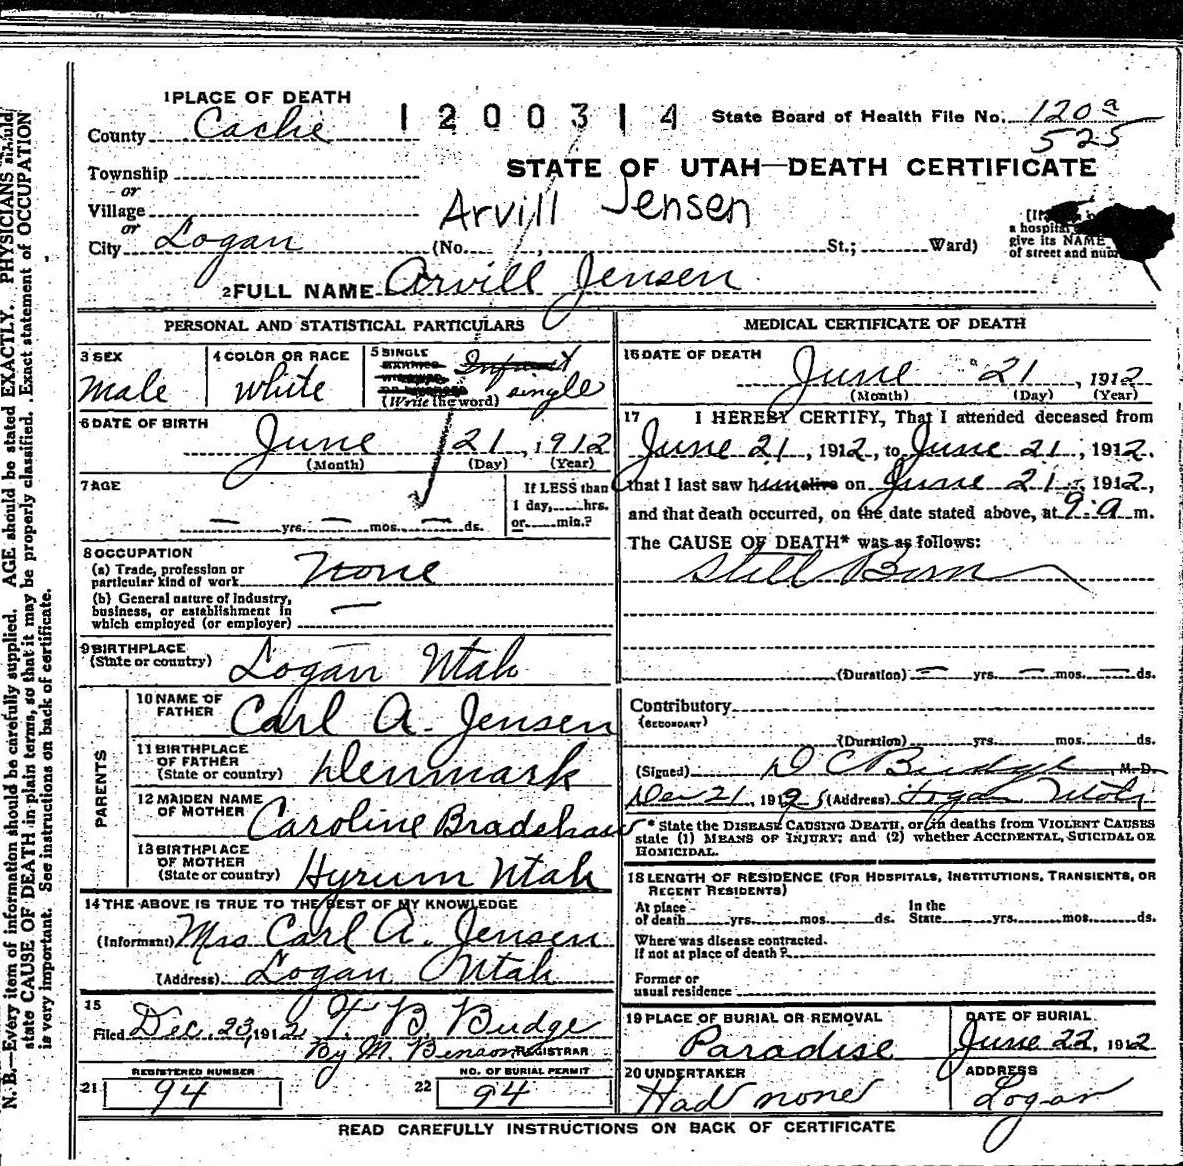 1 PLACE OF DEATH
1200314 State Board of Health File No. 120a
County Cache 525
STATE OF UTAH—DEATH CERTIFICATE
Township
or
Village
Arvill Jensen
or
City Logan (No. , St.; Ward)
a hospital
give its NAME
of street and num
2 FULL NAME Arvill Jensen
PERSONAL AND STATISTICAL PARTICULARS
3 SEX Male
4 COLOR OR RACE white
5 SINGLE Infant
(Write the word) single
6 DATE OF BIRTH
June 21, 1912
(Month) (Day) (Year)
7 AGE
If LESS than
1 day, hrs.
— yrs. — mos. — ds. or min.?
8 OCCUPATION
(a) Trade, profession or
particular kind of work None
(b) General nature of industry,
business, or establishment in
which employed (or employer) —
9 BIRTHPLACE
(State or country) Logan Utah
PARENTS
10 NAME OF
FATHER Carl A. Jensen
11 BIRTHPLACE
OF FATHER
(State or country) Denmark
12 MAIDEN NAME
OF MOTHER Caroline Bradshaw
13 BIRTHPLACE
OF MOTHER
(State or country) Hyrum Utah
14 THE ABOVE IS TRUE TO THE BEST OF MY KNOWLEDGE
(Informant) Mrs Carl A. Jensen
(Address) Logan Utah
15
Filed Dec. 23, 1912, T. B. Budge
By M. Benson REGISTRAR
REGISTERED NUMBER
21 94
NO. OF BURIAL PERMIT
22 94
MEDICAL CERTIFICATE OF DEATH
16 DATE OF DEATH
June 21, 1912
(Month) (Day) (Year)
17 I HEREBY CERTIFY, That I attended deceased from
June 21, 1912, to June 21, 1912,
that I last saw him alive on June 21, 1912,
and that death occurred, on the date stated above, at 9 a m.
The CAUSE OF DEATH* was as follows:
Still Born
(Duration) — yrs. — mos. — ds.
Contributory
(SECONDARY)
(Duration) yrs. mos. ds.
(Signed) D C Budge, M. D.
Dec 21 1912 (Address) Logan Utah
* State the DISEASE CAUSING DEATH, or, in deaths from VIOLENT CAUSES
state (1) MEANS OF INJURY; and (2) whether ACCIDENTAL, SUICIDAL OR
HOMICIDAL.
18 LENGTH OF RESIDENCE (FOR HOSPITALS, INSTITUTIONS, TRANSIENTS, OR
RECENT RESIDENTS)
At place In the
of death yrs. mos. ds. State yrs. mos. ds.
Where was disease contracted.
If not at place of death?
Former or
usual residence
19 PLACE OF BURIAL OR REMOVAL
Paradise
DATE OF BURIAL
June 22, 1912
20 UNDERTAKER
Had none
ADDRESS
Logan
READ CAREFULLY INSTRUCTIONS ON BACK OF CERTIFICATE
N. B.—Every item of information should be carefully supplied. AGE should be stated EXACTLY. PHYSICIANS should
state CAUSE OF DEATH in plain terms, so that it may be properly classified. Exact statement of OCCUPATION
is very important. See instructions on back of certificate.